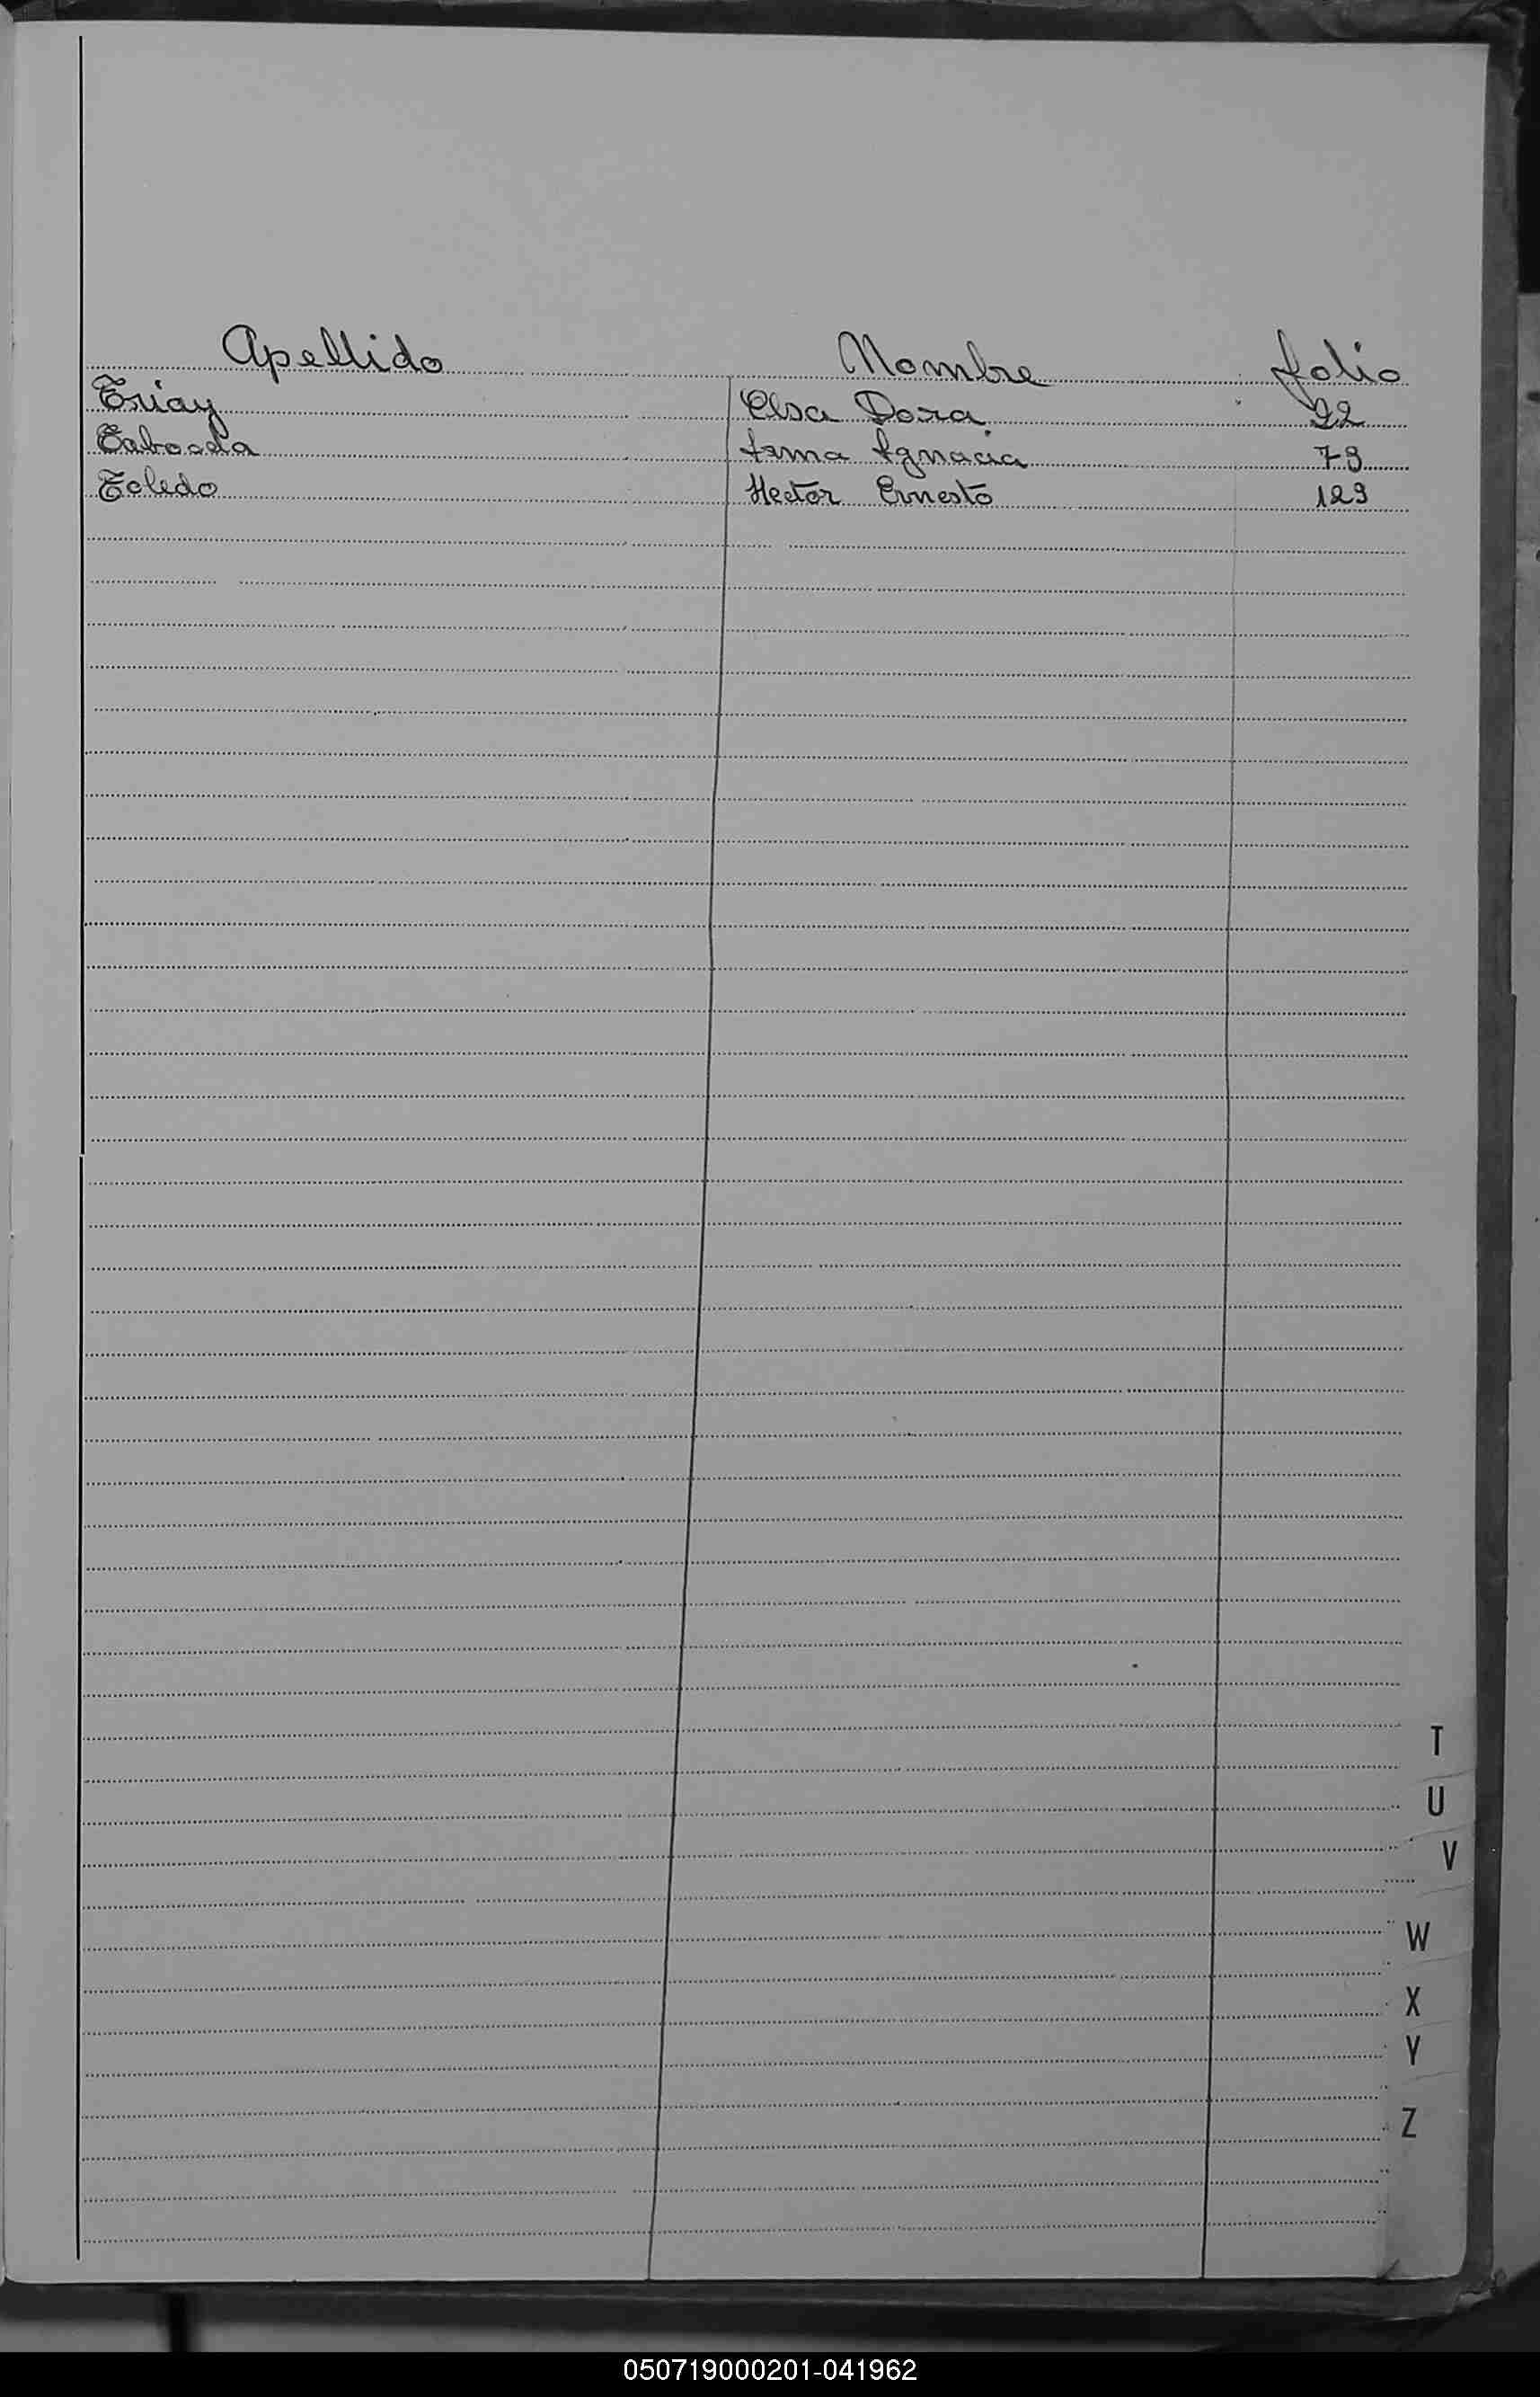 Apellido Nombre folio
Triay Elsa Dora 22
Taboada Irma Ignacia 79
Toledo Hector Ernesto 129
T
U
V
W
X
Y
Z
050719000201-041962